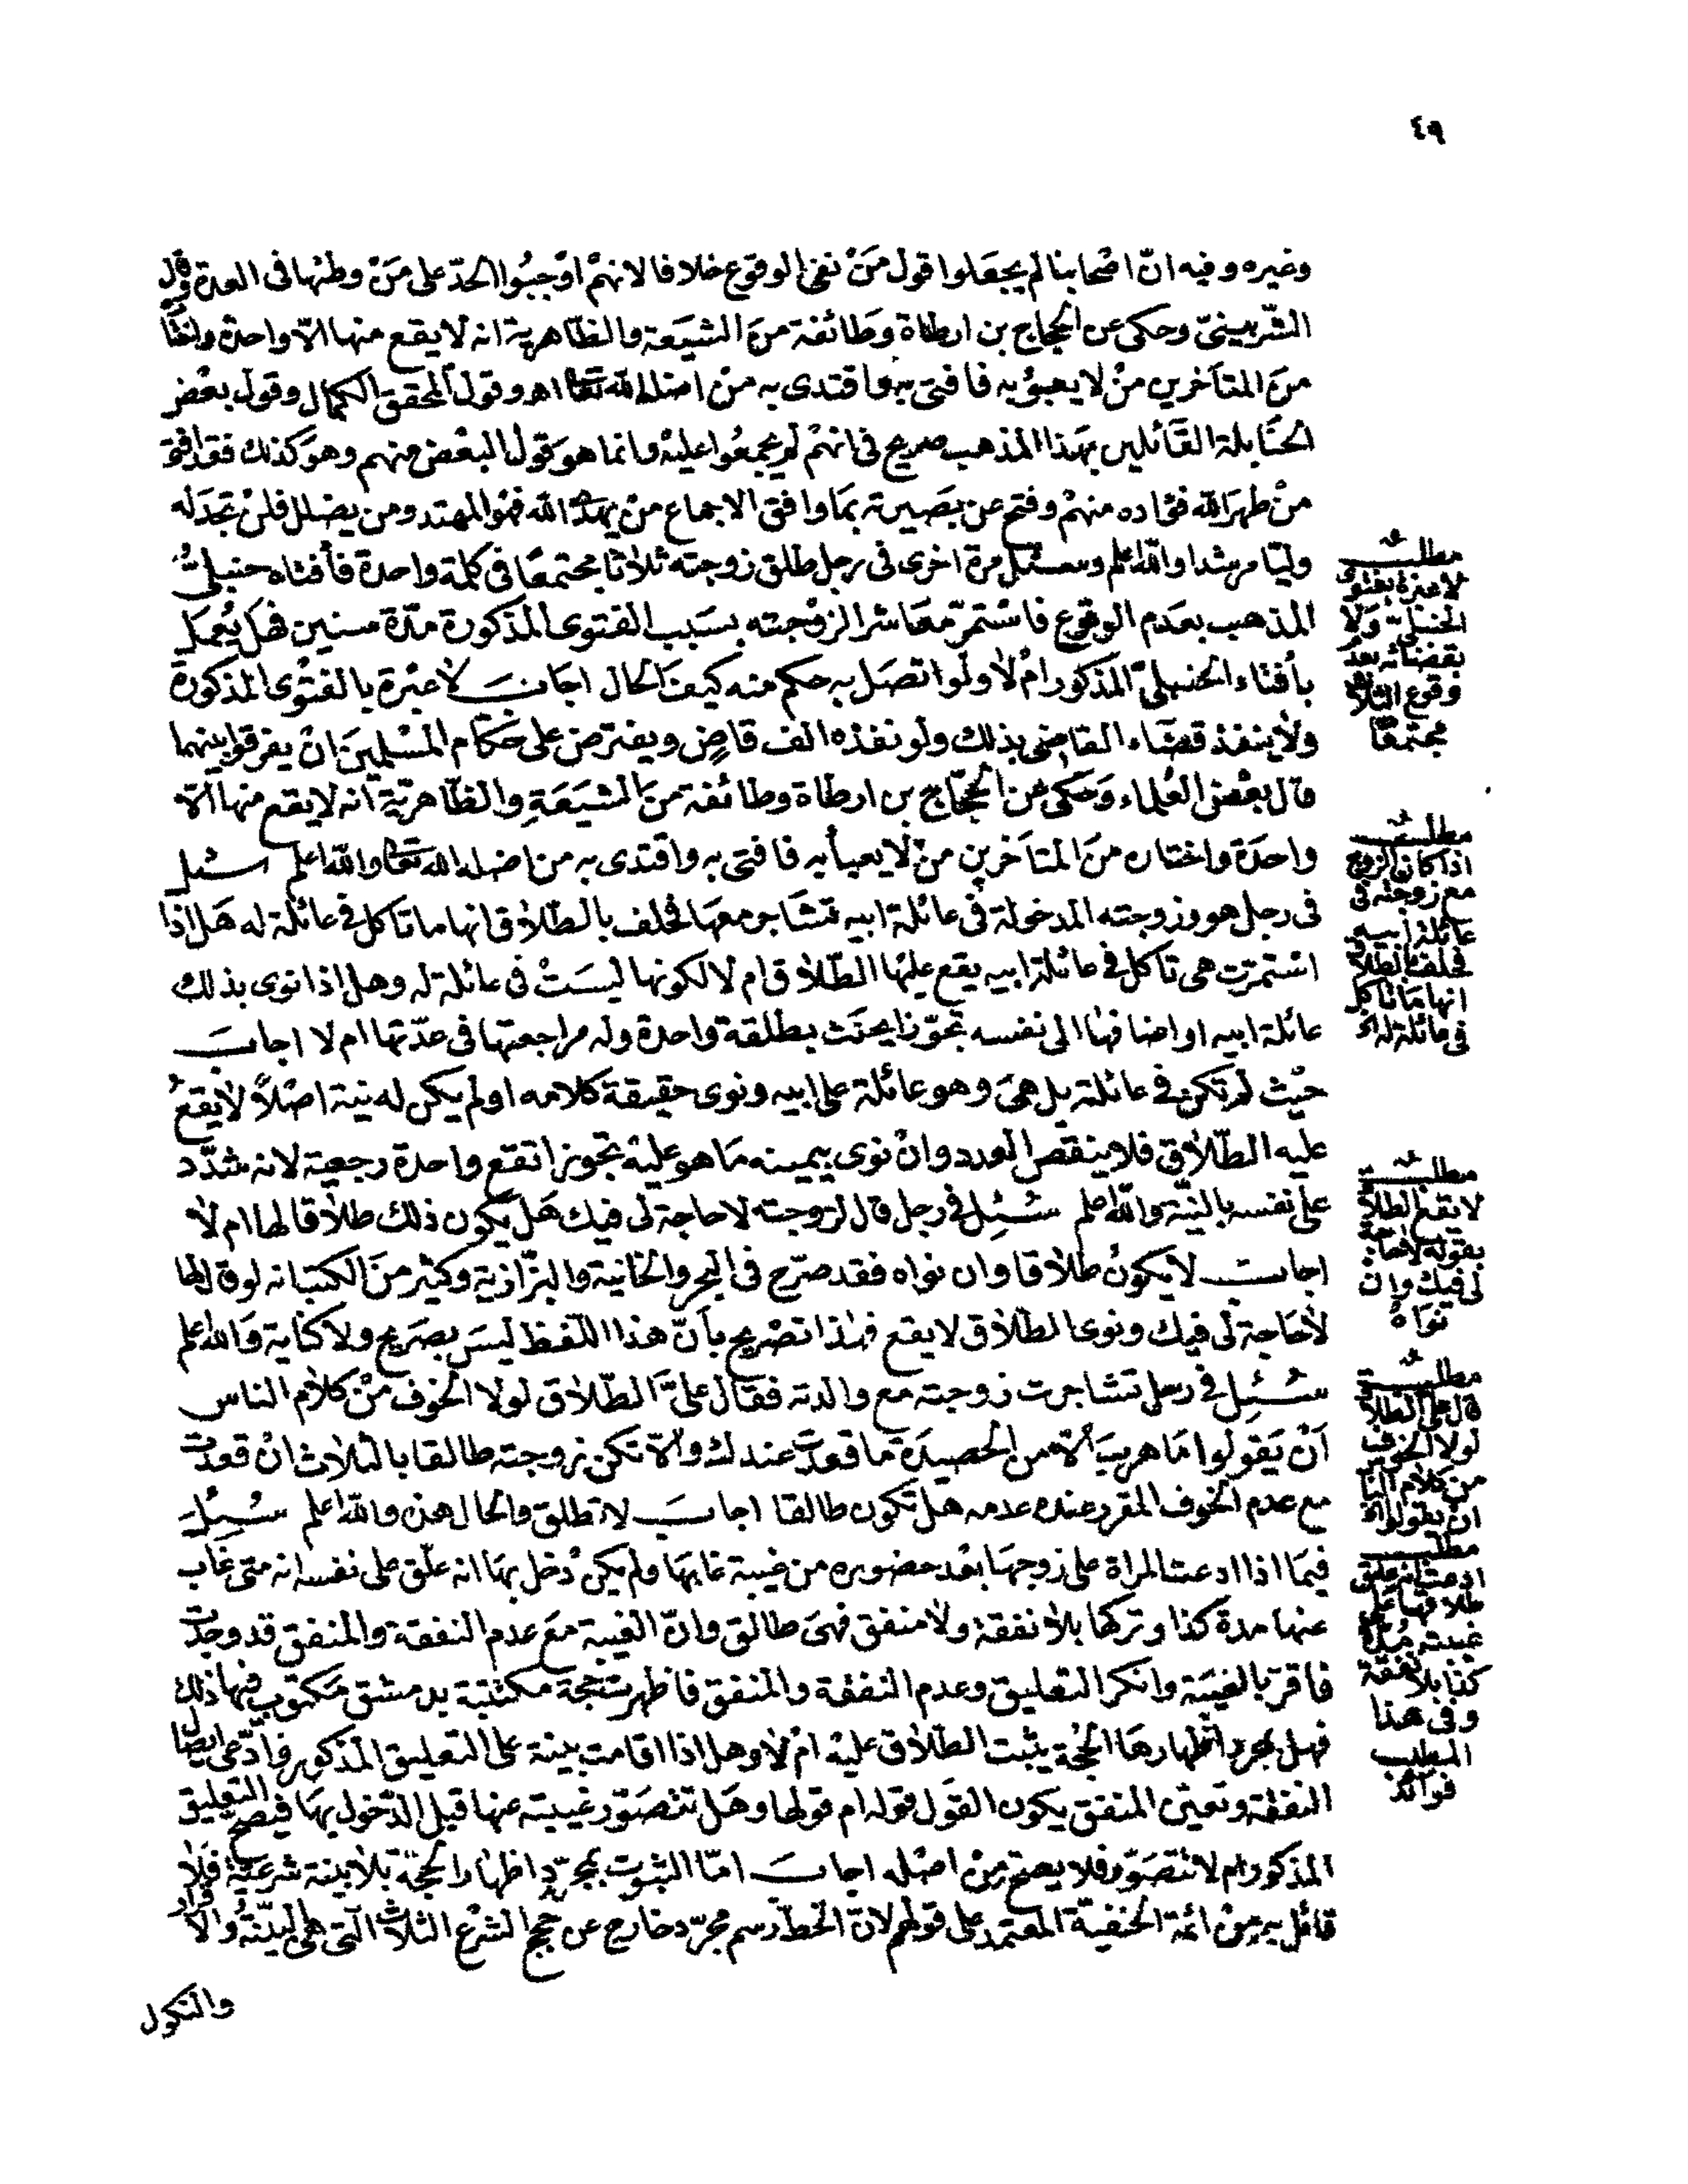 ٤٩
وغيره وفيه انّ اصْحابنا لم يجعَلوا قول مَنْ نفى الوقوع خلافا لانهمْ اوْجبُوا الحدّ على مَنْ وطئها فى العدة وقال
الشّربينىّ وحكى عن الحجاج بن ارطاة وَطائفة منَ الشيعَة والظاهرية انه لا يقع منها الاّ واحدة واختار
منَ المتأخرين منْ لا يعبؤ به فافتى به واقتدى به منْ اضله الله تعَالى اهـ وقول المحقق الكمال وقول بعْض
الحنَابلة القَائلين بهَذا المذهب صريح فى انهمْ لم يجمعُوا عليْه وانما هوَ قول البعْض منهم وهوَ كذلك فقد افتى
منْ طهرَ الله فؤاده منهمْ وفتح عن بصَيرته بمَا وافق الاجماع منْ يهد الله فهوَ المهتد ومن يضلل فلنْ تجدَ له
وليّا مرشدا والله اعلم وسئل مرة اخرى فى رجل طلق زوجته ثلاثا مجتمعًا فى كلمة واحدة فأفتاه حنبلىُّ
المذهب بعدَم الوقوع فاسْتمرّ معَاشرا لزوْجته بسَبب الفتوى المذكورة مدّة سنين فهَل يُعمَل
بافتاء الحنبلىّ المذكور امْ لا ولَو اتصَل به حكم منه كيفَ الحال اجابَ لا عبْرة بالفتْوى المذكورة
ولا ينفذ قضَاء القاضى بذلك ولو نفذه الف قاضٍ ويفترض على حكام المسْلمينَ انْ يفرقوا بينهما
قال بعْض العُلماء وَحكى عن الحجّاج بن ارطاة وطائفة منَ الشيَعَةِ والظّاهريّة انه لا يقع منها الاّ
واحدَة واختار منَ المتأخرين منْ لا يعبأ به فافتى به واقتدى به من اضله الله تعَالى والله اعلم سئل
فى رجل هو وزوجته المدخولة فى عائلة ابيه تشاجر معهَا فحلف بالطّلاق انها ما تاكل فى عائلة له هَل اذا
اسْتمرّت هى تاكل فى عائلة ابيه يقع عليْها الطّلاق ام لا لكونها ليسَتْ فى عائلة له وهل اذا نوى بذلك
عائلة ابيه او اضافهَا الى نفسه تجوّزا يحنَث بطلقة واحدة وله مراجعتها فى عدّتها ام لا اجابَ
حيْث لم تكن فى عائلته بل هىَ وهو عائلة على ابيه ونوى حقيقة كلامه او لم يكن له نية اصْلاً لا يقعُ
عليه الطّلاق فلا ينقص العدد وانْ نوى بيمينه مَا هو عليْه تجوزا تقع واحدة رجعية لانه شدّد
على نفسه بالنيّة والله اعلم سُئِل فى رجل قال لزوجته لا حاجة لى فيك هَل يكون ذلك طلاقا لها ام لا
اجابَ لا يكونُ طلاقا وان نواه فقد صرّح فى البحر والخانية والبزّازية وكثير منَ الكتب انه لو قال لها
لا حَاجة لى فيك ونوى الطلاق لا يقع فهذا تصْريح بأنّ هذا اللفظ ليسَ بصَريح ولا كناية وَالله اعلم
سُئِل فى رجل تشاجرت زوجته مع والدته فقال علىَّ الطّلاق لولا الخوف منْ كلام الناس
اَنْ يَقولوا مَا هربَ الاّ من الحصيدَة ما قعدت عندك والاّ تكن زوجته طالقا بالثلاث انْ قعدت
مع عدم الخوف المقرر عنده عدمه هَل تكون طالقا اجابَ لا تطلق والحال هذه والله اعلم سُئِلَ
فيمَا اذا ادعت المراة على زوجهَا بعْد حضوره من غيبة غابهَا ولم يكنْ دخل بهَا انه علّق على نفسه انه متى غاب
عنها مدة كذا وتركها بلا نفقة ولا منفق فهىَ طالق وانّ الغيبة معَ عدم النفقة والمنفق قد وجدَت
فاقرّ بالغيَبة وانكر التعليق وعدم النفقة والمنفق فاظهرت حجة مكتتبة بدمشق مَكتوب فيها ذلك
فهل بمجرد اظهارهَا الحجّة يثبت الطّلاق عليْه امْ لا وهل اذا اقامت بينة على التعليق المذكور وادّعى ايصَال
النفقة وتعيّن المنفق يكون القَول قوله ام قولها وهَل تتصَوّر غيبته عنها قبل الدّخول بهَا فيصحّ التعليق
المذكور ام لا تتصَوّر فلا يصحّ منْ اصْله اجابَ امّا الثبوت بمجرّد اظهار الحجّة بلا بينة شرعيّة فلا
قائل به منْ ائمة الحنفيّة المعتمد على قولهم لانّ الخطّ رسم مجرّد خارج عن حجج الشرْع الثلاث الّتى هى البيّنةُ والاقرار
والنكول
مطلب
لا عبرة بفتوى
الحنبلىّ وَلا
بقضائه بعدَ
وقوع الثلاث
مجتمعًا
مطلب
اذا كان الزوج
مع زوجته فى
عائلة ابيه
فحلف بالطلاق
انها مَا تاكل
فى عائلة له الخ
مطلب
لا يقع الطلاق
بقوله لا حاجة
لى فيك وان
نوَاهُ
مطلب
قال علىّ الطلاق
لولا الخوف
من كلام الناس
ان يقولوا الخ
مطلب
ادعت انه علق
طلاقها على
غيبته مُدّة
كذا بلا نفقة
وفى هذا
المطلب
فوائد